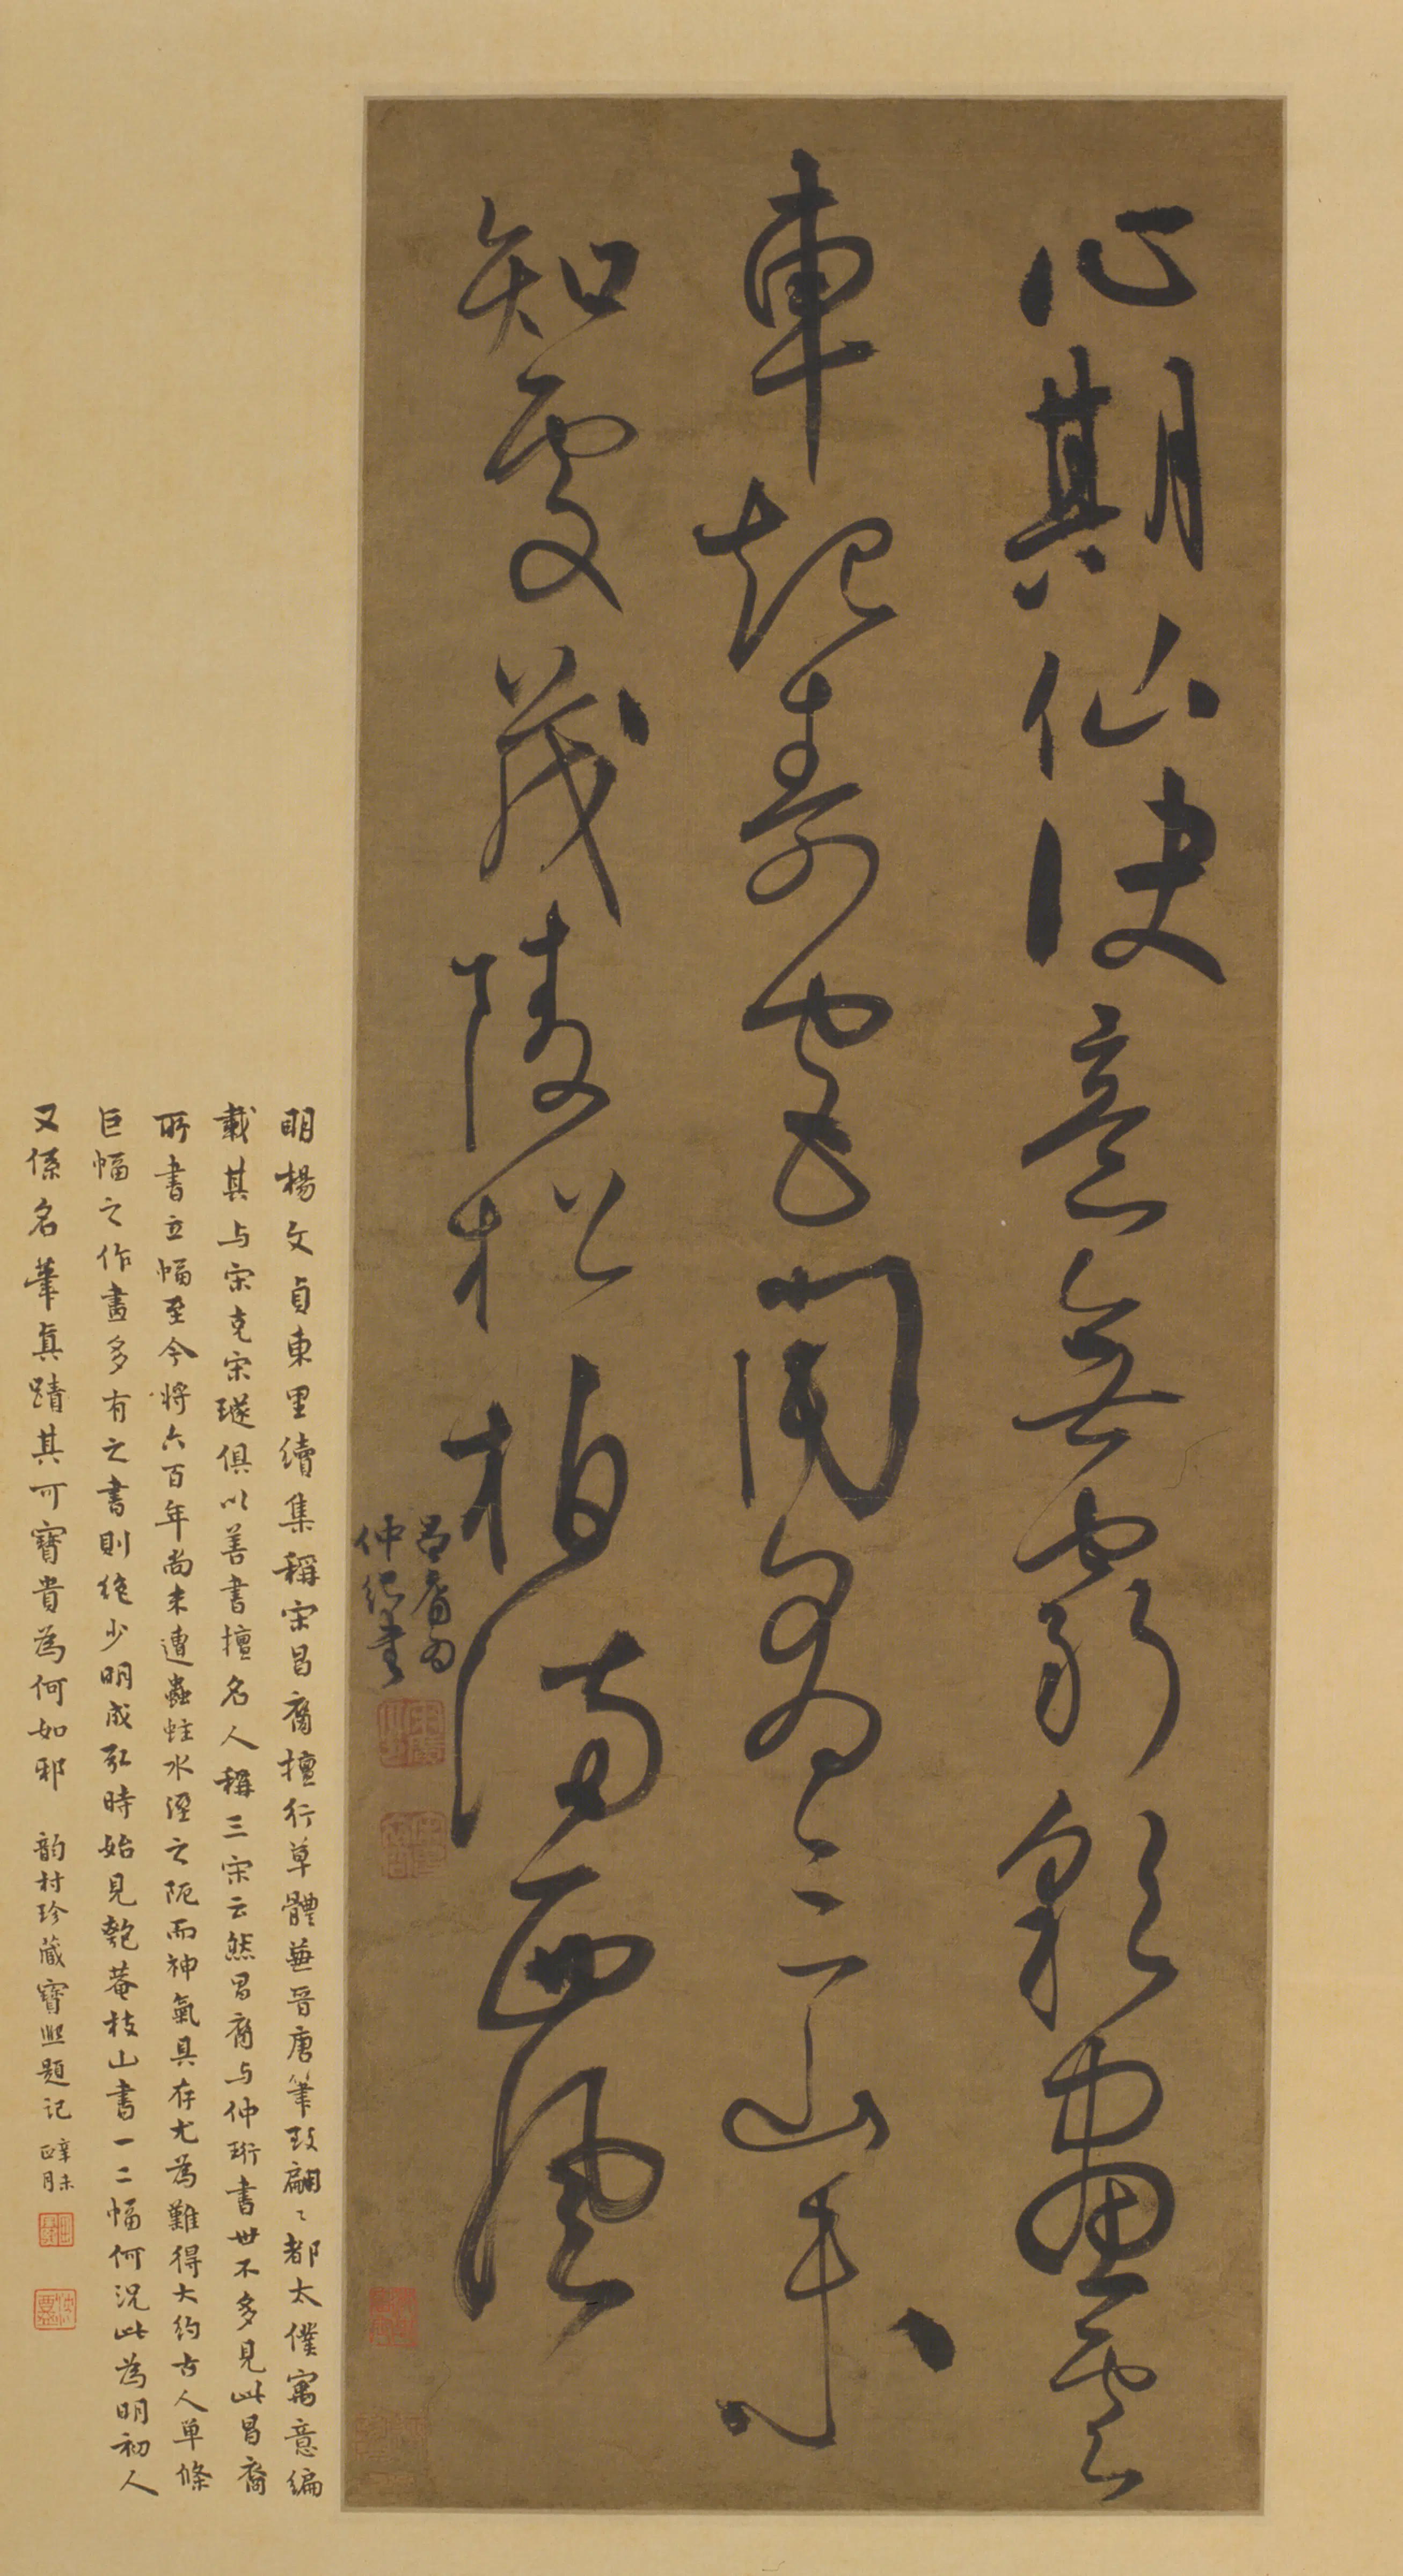 心期仙訣意無窮彩畫雲
車起壽宮聞有三山未
知處茂陵松柏滿西風
昌裔為
仲紀書
明楊文貞東里續集稱宋昌裔擅行草體兼晉唐筆致翩〻都太僕寓意編
載其与宋克宋璲俱以善書擅名人稱三宋云然昌裔与仲珩書世不多見此昌裔
所書立幅至今將六百年尚未遭蟲蛀水溼之阨而神氣具存尤為難得大約古人單條
巨幅之作畫多有之書則絕少明成弘時始見匏菴枝山書一二幅何況此為明初人
又係名筆真蹟其可寶貴為何如邪 韵村珍藏寶熙題記 辛未正月